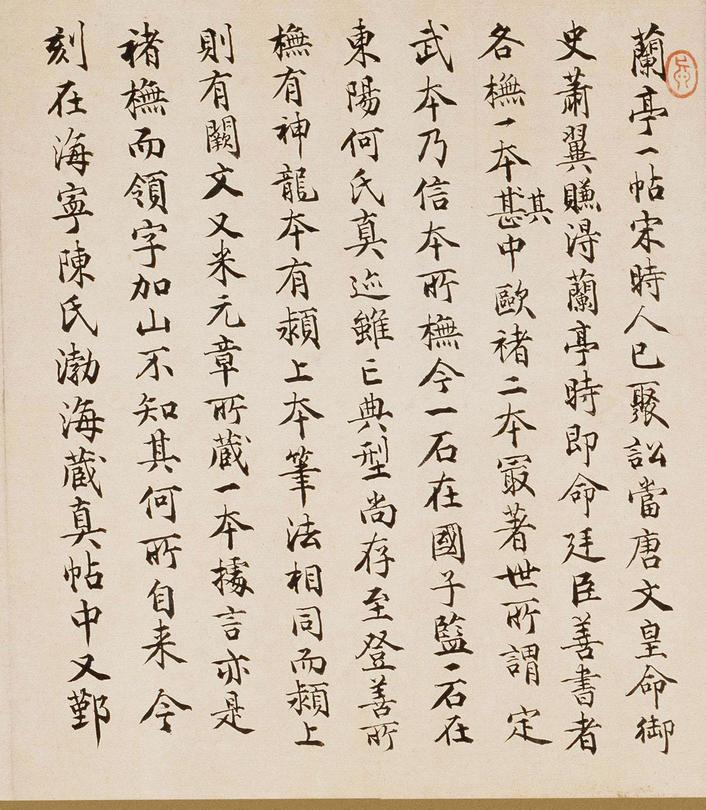 蘭亭一帖宋時人已聚訟當唐文皇命御
史蕭翼賺得蘭亭時即命廷臣善書者
各橅一本甚其中歐褚二本冣著世所謂定
武本乃信本所橅今一石在國子監一石在
東陽何氏真迹雖亡典型尚存至登善所
橅有神龍本有潁上本筆法相同而潁上
則有闕文又米元章所蔵一本據言亦是
褚橅而領字加山不知其何所自来今
刻在海寧陳氏渤海蔵真帖中又鄞